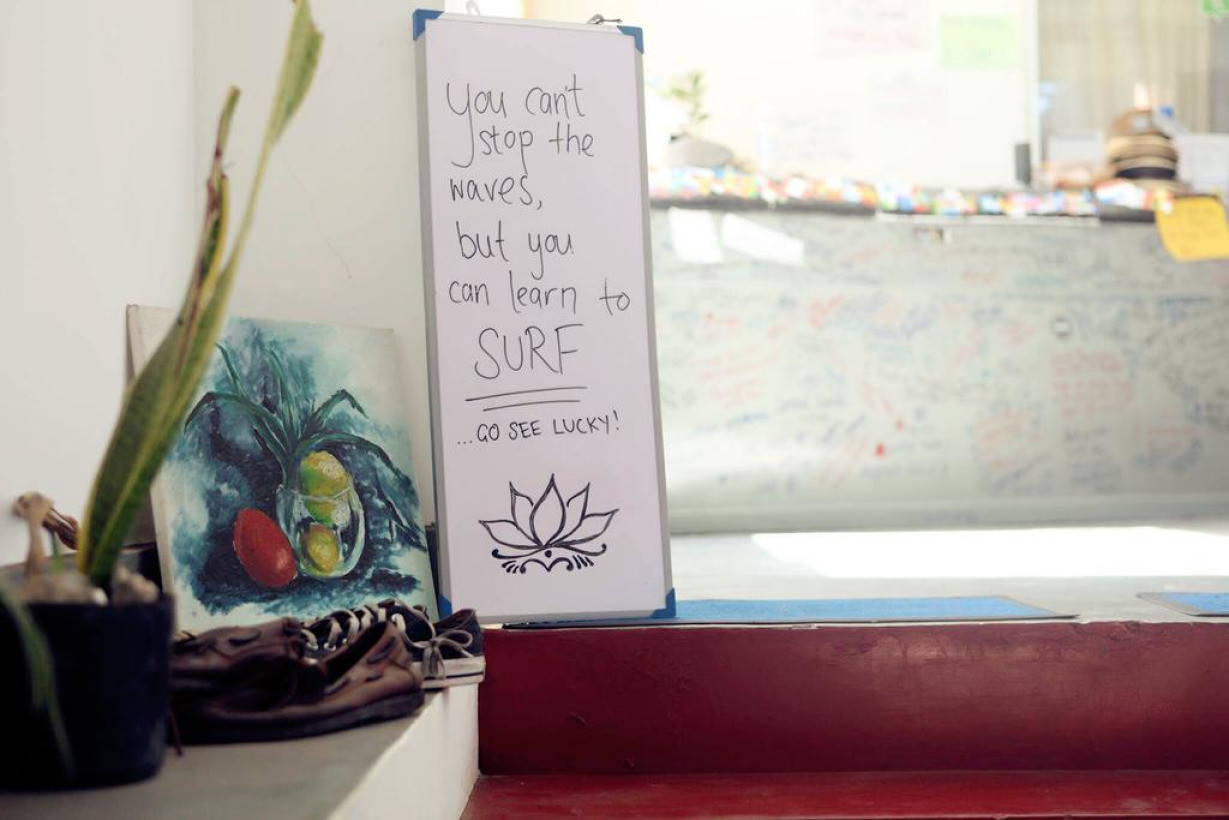 You can't
stop the
waves,
but you
can learn to
SURF
...GO SEE LUCKY!